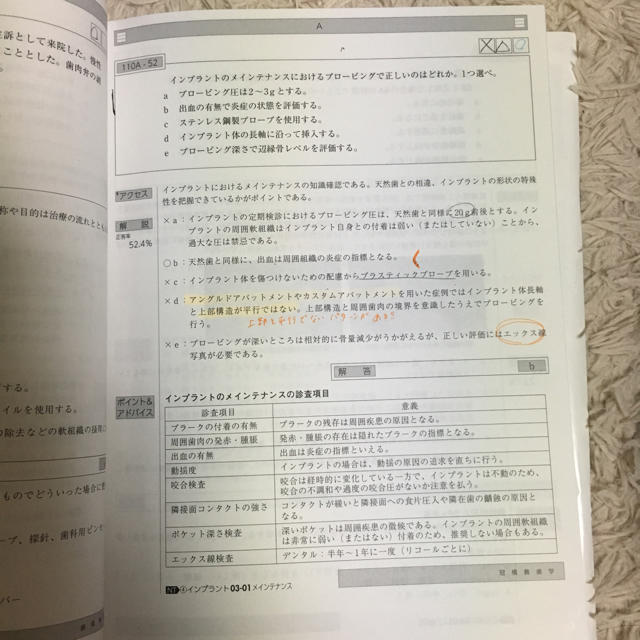 主訴として来院した。慢性
こととした。歯肉弁の
称や目的は治療の流れととも
する。
イルを使用する。
の除去などの軟組織の掻爬に
ものでどういった場合に
ーブ、探針、歯科用ピンセ
バー
A
110A - 52
インプラントのメインテナンスにおけるプロービングで正しいのはどれか。1つ選べ。
a プロービング圧は2〜3gとする。
b 出血の有無で炎症の状態を評価する。
c ステンレス鋼製プローブを使用する。
d インプラント体の長軸に沿って挿入する。
e プロービング深さで辺縁骨レベルを評価する。
アクセス
インプラントにおけるメインテナンスの知識確認である。天然歯との相違、インプラントの形状の特殊
性を把握できているかがポイントである。
解説
正答率
52.4%
×a:インプラントの定期検診におけるプロービング圧は、天然歯と同様に20g前後とする。イン
プラントの周囲軟組織はインプラント自身との付着は弱い(またはしていない)ことから、
過大な圧は禁忌である。
○b:天然歯と同様に、出血は周囲組織の炎症の指標となる。
×c:インプラント体を傷つけないための配慮からプラスティックプローブを用いる。
×d:アングルドアバットメントやカスタムアバットメントを用いた症例ではインプラント体長軸
と上部構造が平行ではない。上部構造と周囲歯肉の境界を意識したうえでプロービングを
行う。
上部と平行でないパターンがある!!
×e:プロービングが深いところは相対的に骨量減少がうかがえるが、正しい評価にはエックス線
写真が必要である。
解答
b
ポイント&
アドバイス
インプラントのメインテナンスの診査項目
診査項目 意義
プラークの付着の有無 プラークの残存は周囲疾患の原因となる。
周囲歯肉の発赤・腫脹 発赤・腫脹の存在は隠れたプラークの指標となる。
出血の有無 出血は炎症の指標といえる。
動揺度 インプラントの場合は、動揺の原因の追求を直ちに行う。
咬合検査 咬合は経時的に変化している一方で、インプラントは不動のため、
咬合の不調和や過度の咬合圧がないか注意を払う。
隣接面コンタクトの強さ コンタクトが緩いと隣接面への食片圧入や隣在歯の齲蝕の原因と
なる。
ポケット深さ検査 深いポケットは周囲疾患の徴候である。インプラントの周囲軟組織
は非常に弱い(またはない)付着のため、推奨しない場合もある。
エックス線検査 デンタル:半年〜1年に一度(リコールごとに)
冠橋義歯学
NT ④インプラント 03-01 メインテナンス